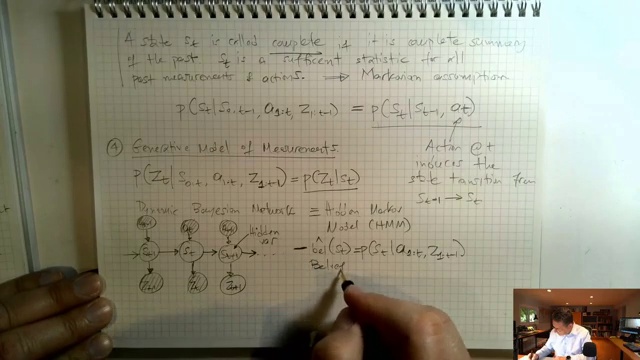 A state St is called complete if it is complete summary
of the past St is a sufficent statistic for all
past measurements & actions. ⟹ Markovian assumption
p(St|S0:t-1, a1:t, Z1:t-1) = p(St|St-1, at)
Action @ t
induces the
state transition from
St-1 → St
④ Generative Model of Measurements
p(Zt|S0:t, a1:t, Z1:t-1) = p(Zt|St)
Dynamic Bayesian Networks ≡ Hidden Markov
Model (HMM)
hidden
var
St-1 → St → St+1 → ...
Zt Zt+1
– bel(St) = p(St|a1:t, Z1:t-1)
Belief